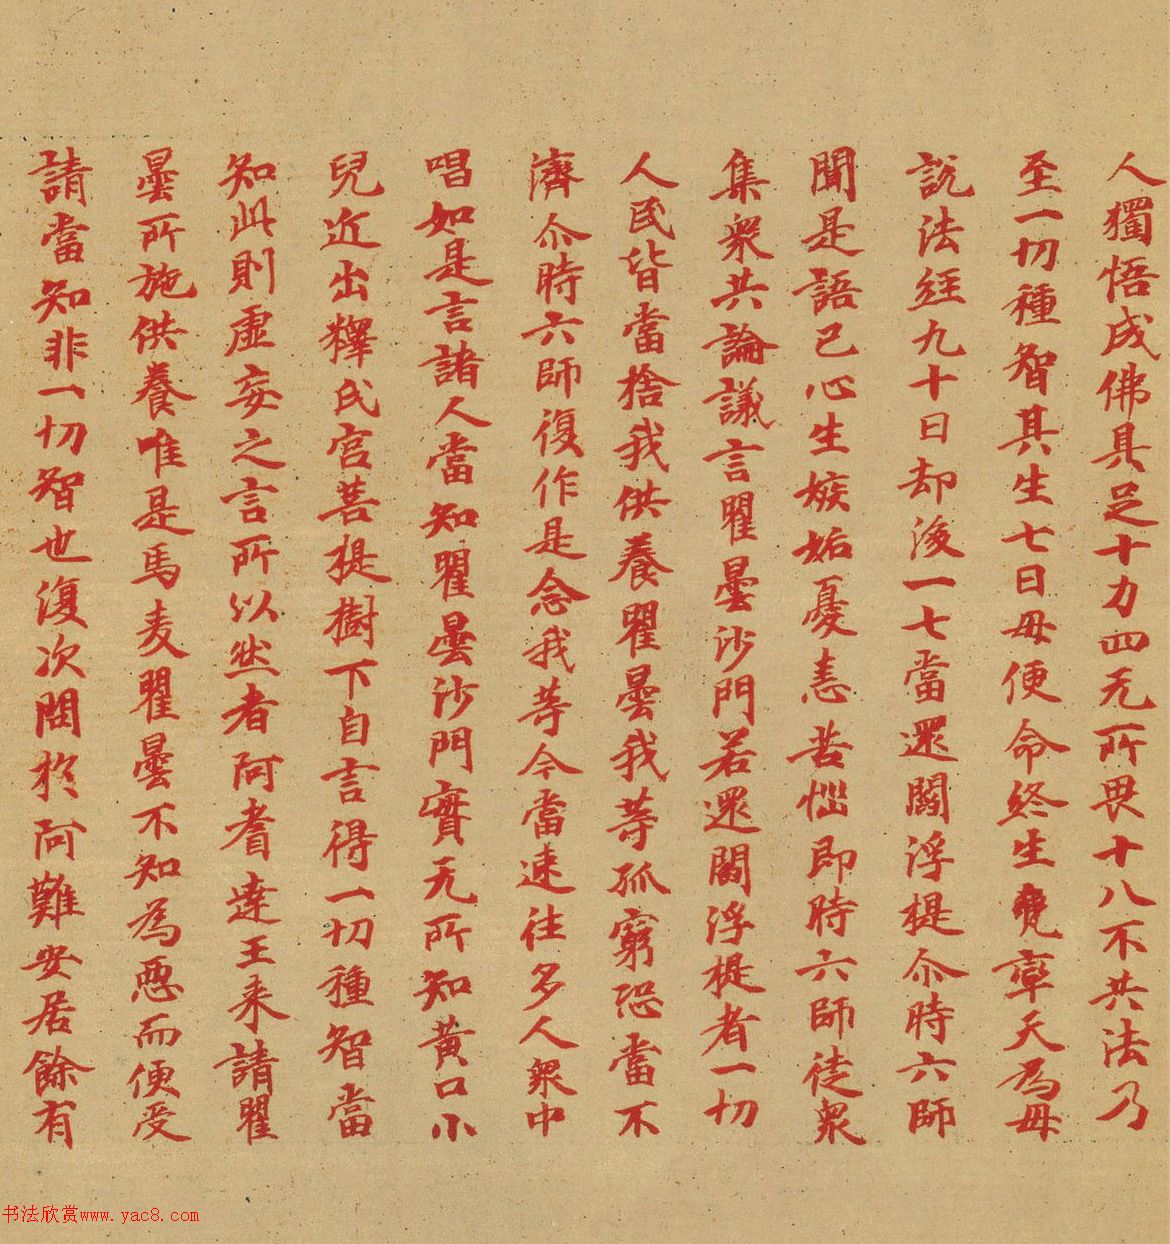 人獨悟成佛具足十力四无所畏十八不共法乃
至一切種智其生七日母便命終生兜率天為母
說法經九十日却後一七當還閻浮提尒時六師
聞是語已心生嫉妬憂恚苦惱即時六師徒衆
集衆共論議言瞿曇沙門若還閻浮提者一切
人民皆當捨我供養瞿曇我等孤窮恐當不
濟尒時六師復作是念我等今當速往多人衆中
唱如是言諸人當知瞿曇沙門實无所知黃口小
兒近出釋氏宮菩提樹下自言得一切種智當
知此則虛妄之言所以然者阿耆達王來請瞿
曇所施供養唯是馬麦瞿曇不知為惡而便受
請當知非一切智也復次問於阿難安居餘有
书法欣赏www.yac8.com